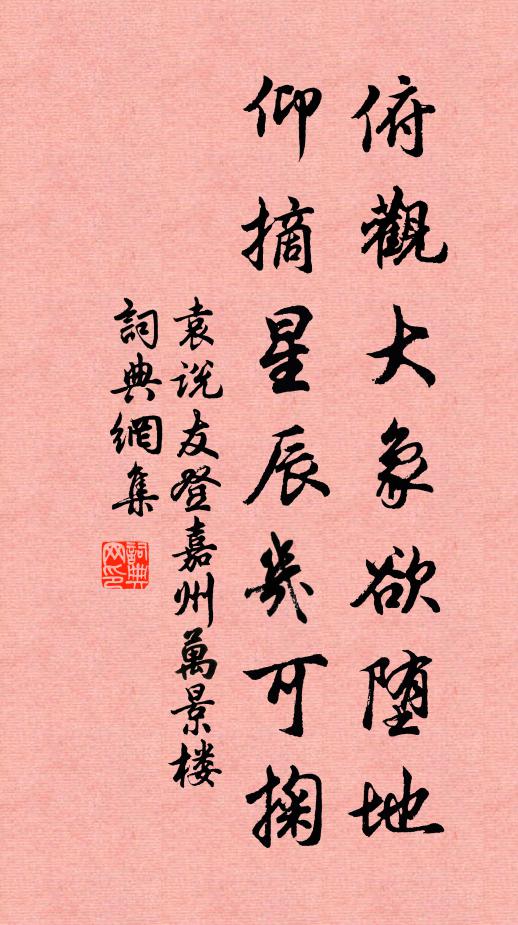 俯觀大象欲堕地
仰摘星辰幾可掬
袁说友登嘉州萬景楼
詞典網集
詞典网印